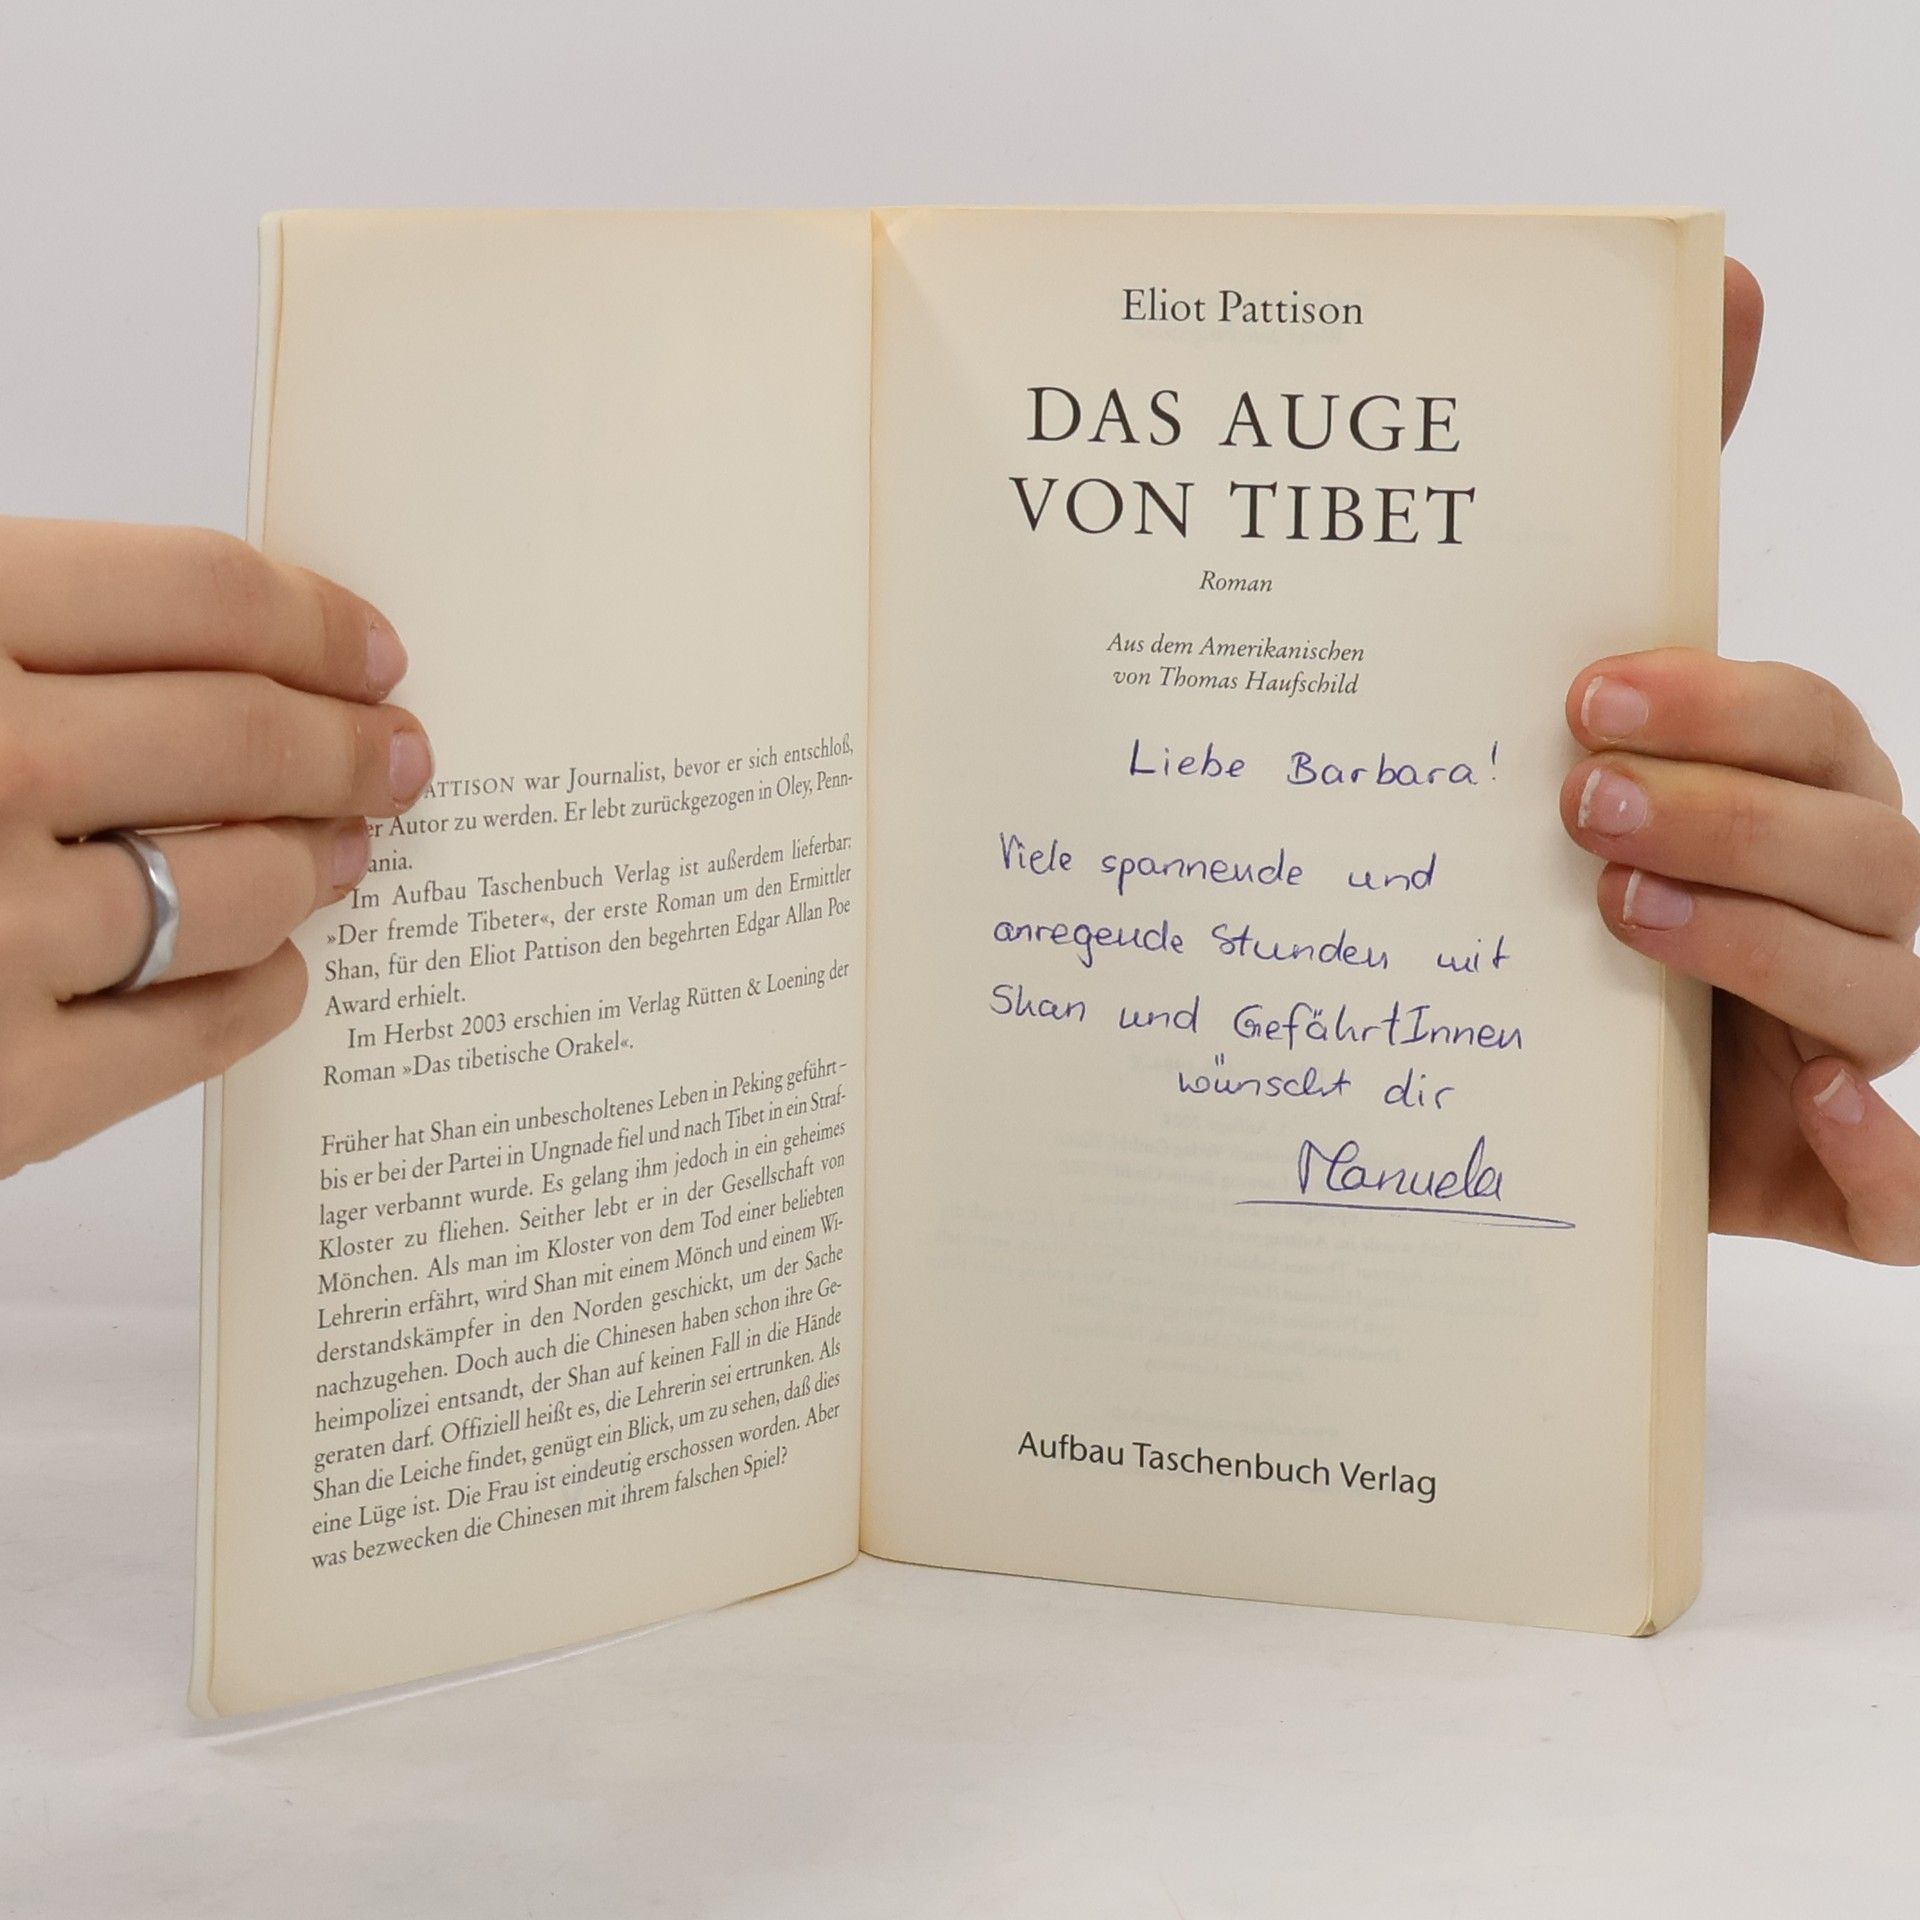 ATTISON war Journalist, bevor er sich entschloß,
er Autor zu werden. Er lebt zurückgezogen in Oley, Penn-
ania.
Im Aufbau Taschenbuch Verlag ist außerdem lieferbar:
»Der fremde Tibeter«, der erste Roman um den Ermittler
Shan, für den Eliot Pattison den begehrten Edgar Allan Poe
Award erhielt.
Im Herbst 2003 erschien im Verlag Rütten & Loening der
Roman »Das tibetische Orakel«.
Früher hat Shan ein unbescholtenes Leben in Peking geführt –
bis er bei der Partei in Ungnade fiel und nach Tibet in ein Straf-
lager verbannt wurde. Es gelang ihm jedoch in ein geheimes
Kloster zu fliehen. Seither lebt er in der Gesellschaft von
Mönchen. Als man im Kloster von dem Tod einer beliebten
Lehrerin erfährt, wird Shan mit einem Mönch und einem Wi-
derstandskämpfer in den Norden geschickt, um der Sache
nachzugehen. Doch auch die Chinesen haben schon ihre Ge-
heimpolizei entsandt, der Shan auf keinen Fall in die Hände
geraten darf. Offiziell heißt es, die Lehrerin sei ertrunken. Als
Shan die Leiche findet, genügt ein Blick, um zu sehen, daß dies
eine Lüge ist. Die Frau ist eindeutig erschossen worden. Aber
was bezwecken die Chinesen mit ihrem falschen Spiel?
Eliot Pattison
DAS AUGE
VON TIBET
Roman
Aus dem Amerikanischen
von Thomas Haufschild
Liebe Barbara!
Viele spannende und
anregende Stunden mit
Shan und GefährtInnen
wünscht dir
Manuela
Aufbau Taschenbuch Verlag